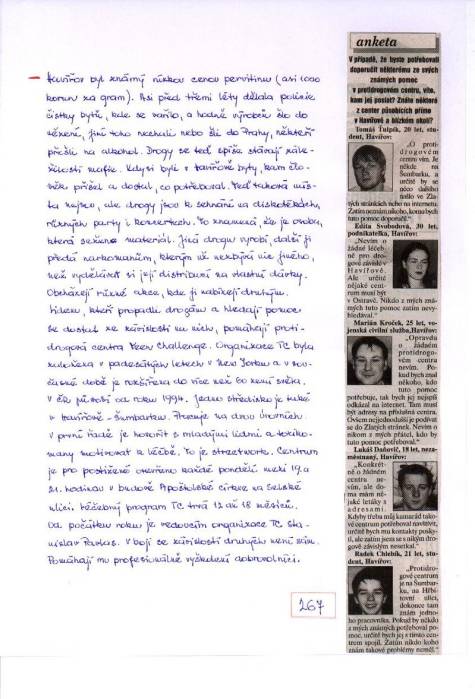 - Havířov byl známý nízkou cenou pervitinu (asi 1000
korun za gram). Asi před třemi léty dělala policie
čistky bytů, kde se vařilo, a hodně výrobců šlo do
vězení, jiní toho nechali nebo šli do Prahy, někteří
přešli na alkohol. Drogy se teď spíša stávají zále-
žitostí mafie. Kdysi byli v Havířově byty, kam člo-
věk přišel a dostal, co potřeboval. Teď taková mís-
ta nejsou, ale drogy jsou k sehnání na diskotékách,
různých party i koncertech. To znamená, že je osoba,
která sežene materiál. Jiná drogu vyrobí, další ji
předá narkomanům, kterým už nezbývá nic jiného,
než vydělávat si její distribucí na vlastní dávky.
Obcházejí různé akce, kde ji nabízejí druhým.
Lidem, kteří propadli drogám a hledají pomoc
se dostat ze závislosti na nich, pomáhají proti-
drogová centra Teen Challenge. Organizace TC byla
založena v padesátých letech v New Yorku a v sou-
časné době je rozšířena do více než 60 zemí světa.
V ČR působí od roku 1994. Jedno středisko je také
v Havířově - Šumbarku. Pracuje na dvou úrovních
v první řadě je hovořit s mladými lidmi a toxiko-
many motivovat k léčbě. To je streetwork. Centrum
je pro postižené otevřeno každé pondělí mezi 19. a
21. hodinou v budově Apoštolské církve na Selské
ulici. Léčebný program TC trvá 12 až 18 měsíců.
Od počátku roku je vedoucím organizace TC Sta-
nislav Pavlas. V boji se závislostí druhých není sám.
Pomáhají mu profesionálně vyškolení dobrovolníci.
267
anketa
V případě, že byste potřebovali
doporučit některému ze svých
známých pomoc
v protidrogovém centru, víte,
kam jej poslat? Znáte některé
z center působících přímo
v Havířově a blízkém okolí?
Tomáš Ťulpík, 20 let, stu-
dent, Havířov:
„O proti
drogovém
centru vím. Je
někde na
Šumbarku,
a určitě by se
něco dalšího
našlo ve Zla-
tých stránkách nebo na internetu.
Zatím neznám nikoho, komu bych
tuto pomoc doporučil."
Edita Svobodová, 30 let,
podnikatelka, Havířov:
„Nevím o
žádné léčeb-
ně pro dro-
gově závislé v
Havířově.
Ale určitě
nějaké cent-
rum musí být
v Ostravě. Nikdo z mých zná-
mých tuto pomoc zatím nevy-
hledával."
Marián Kroček, 25 let, vo-
jenská civilní služba, Havířov:
„Opravdu
o žádném
protidrogo-
vém centru
nevím. Po-
kud bych znal
někoho, kdo
tuto pomoc
potřebuje, tak bych jej nejspíš
odkázal na internet. Tam musí
být adresy na příslušná centra.
Ovšem nejjednodušší je podívat
se do Zlatých stránek. Nevím o
nikom z mých přátel, kdo by
tuto pomoc potřeboval."
Lukáš Daňovič, 18 let, neza-
městnaný, Havířov:
„Konkrét-
ně o žádné
centru ne-
vím, ale do-
ma mám ně-
jaké letáky
s adresami.
Kdyby třeba můj kamarád tako-
vé centrum potřeboval navštívit,
určitě bych mu kontakty posky-
tl, ale zatím jsem se s nikým dro-
gově závislým nesetkal."
Radek Chlebík, 21 let, stu-
dent, Havířov:
„Protidro-
gové centrum
je na Šumbar-
ku, na Hřbi-
tovní ulici,
dokonce tam
znám jedno-
ho pracovníka. Pokud by někdo
z mých známých potřeboval po-
moc, určitě bych jej s tímto cen-
trem spojil. Zatím nikdo koho
znám takové problémy neměl."